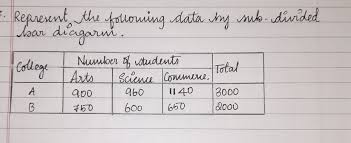 Represent the following data by sub-divided
bar diagarm.
College Number of students Total
Arts Science Commerce.
A 900 960 1140 3000
B 750 600 650 2000